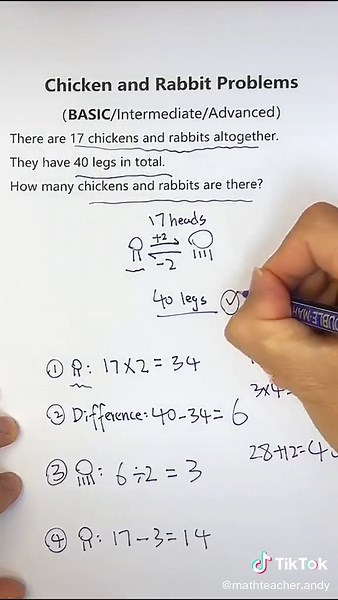 Chicken and Rabbit Problems
(BASIC/Intermediate/Advanced)
There are 17 chickens and rabbits altogether.
They have 40 legs in total.
How many chickens and rabbits are there?
17 heads
+2
-2
40 legs
① : 17×2=34
3×4=
② Difference: 40-34=6
28+12=40
③ : 6÷2=3
④ : 17-3=14
DOUBLE-MA
TikTok
@mathteacher.andy